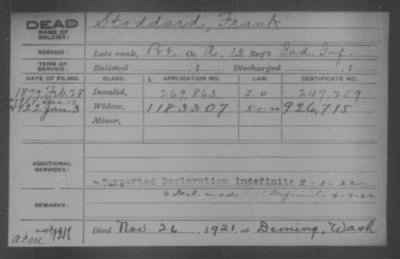 DEAD
NAME OF SOLDIER:
Stoddard, Frank
SERVICE:
Late rank, Pvt. Co. A, 13 Reg't Ind. Inf.
TERM OF SERVICE:
Enlisted , 1 Discharged , 1
DATE OF FILING. CLASS. APPLICATION NO. LAW. CERTIFICATE NO.
1879 Feb. 28 Invalid, 269,863 J.O 247,259
1922 Jan. 3 Widow, 1183307 926,715
Minor,
ADDITIONAL SERVICES:
Purported Declaration Indefinite
REMARKS:
Died Nov. 26, 1921, at Deming, Wash.